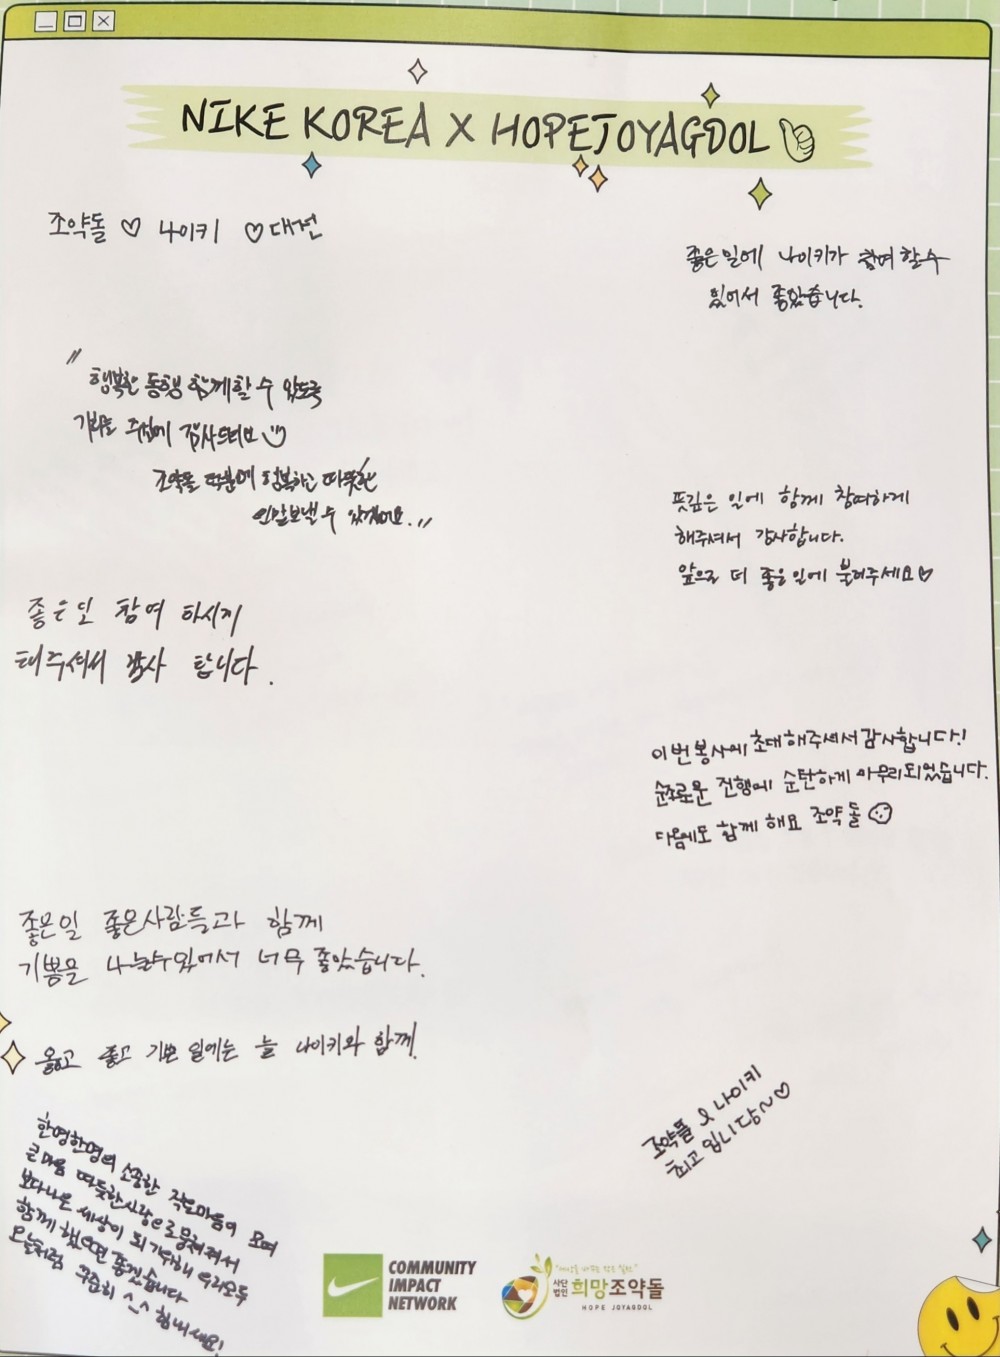 NIKE KOREA X HOPEJOYAGDOL
조약돌 ♡ 나이키 ♡ 대전
좋은 일에 나이키가 참여 할 수
있어서 좋았습니다.
"행복한 동행 함께할 수 있도록
기회를 주심에 감사드려요
조약돌 덕분에 행복하고 따뜻한
연말보낼 수 있겠어요."
뜻깊은 일에 함께 참여하게
해주셔서 감사합니다.
앞으로 더 좋은일에 불러주세요♡
좋은일 참여 하시게
해주셔서 감사 합니다.
이번봉사에 초대해주셔서 감사합니다!
순조로운 진행에 순탄하게 마무리되었습니다.
다음에도 함께 해요 조약돌
좋은일 좋은사람들과 함께
기쁨을 나눌수있어서 너무 좋았습니다.
옳고 좋고 기쁜 일에는 늘 나이키와 함께.
조약돌 & 나이키
최고입니당~♡
한명한명의 소중한 작은마음이 모여
큰마음 따뜻한사랑으로 뭉쳐져서
보다나은 세상이 되기위해 우리모두
함께 했으면 좋겠습니다
오늘처럼 꾸준히 ^_^ 힘내세요!
COMMUNITY
IMPACT
NETWORK
사단
법인 희망조약돌
HOPE JOYAGDOL